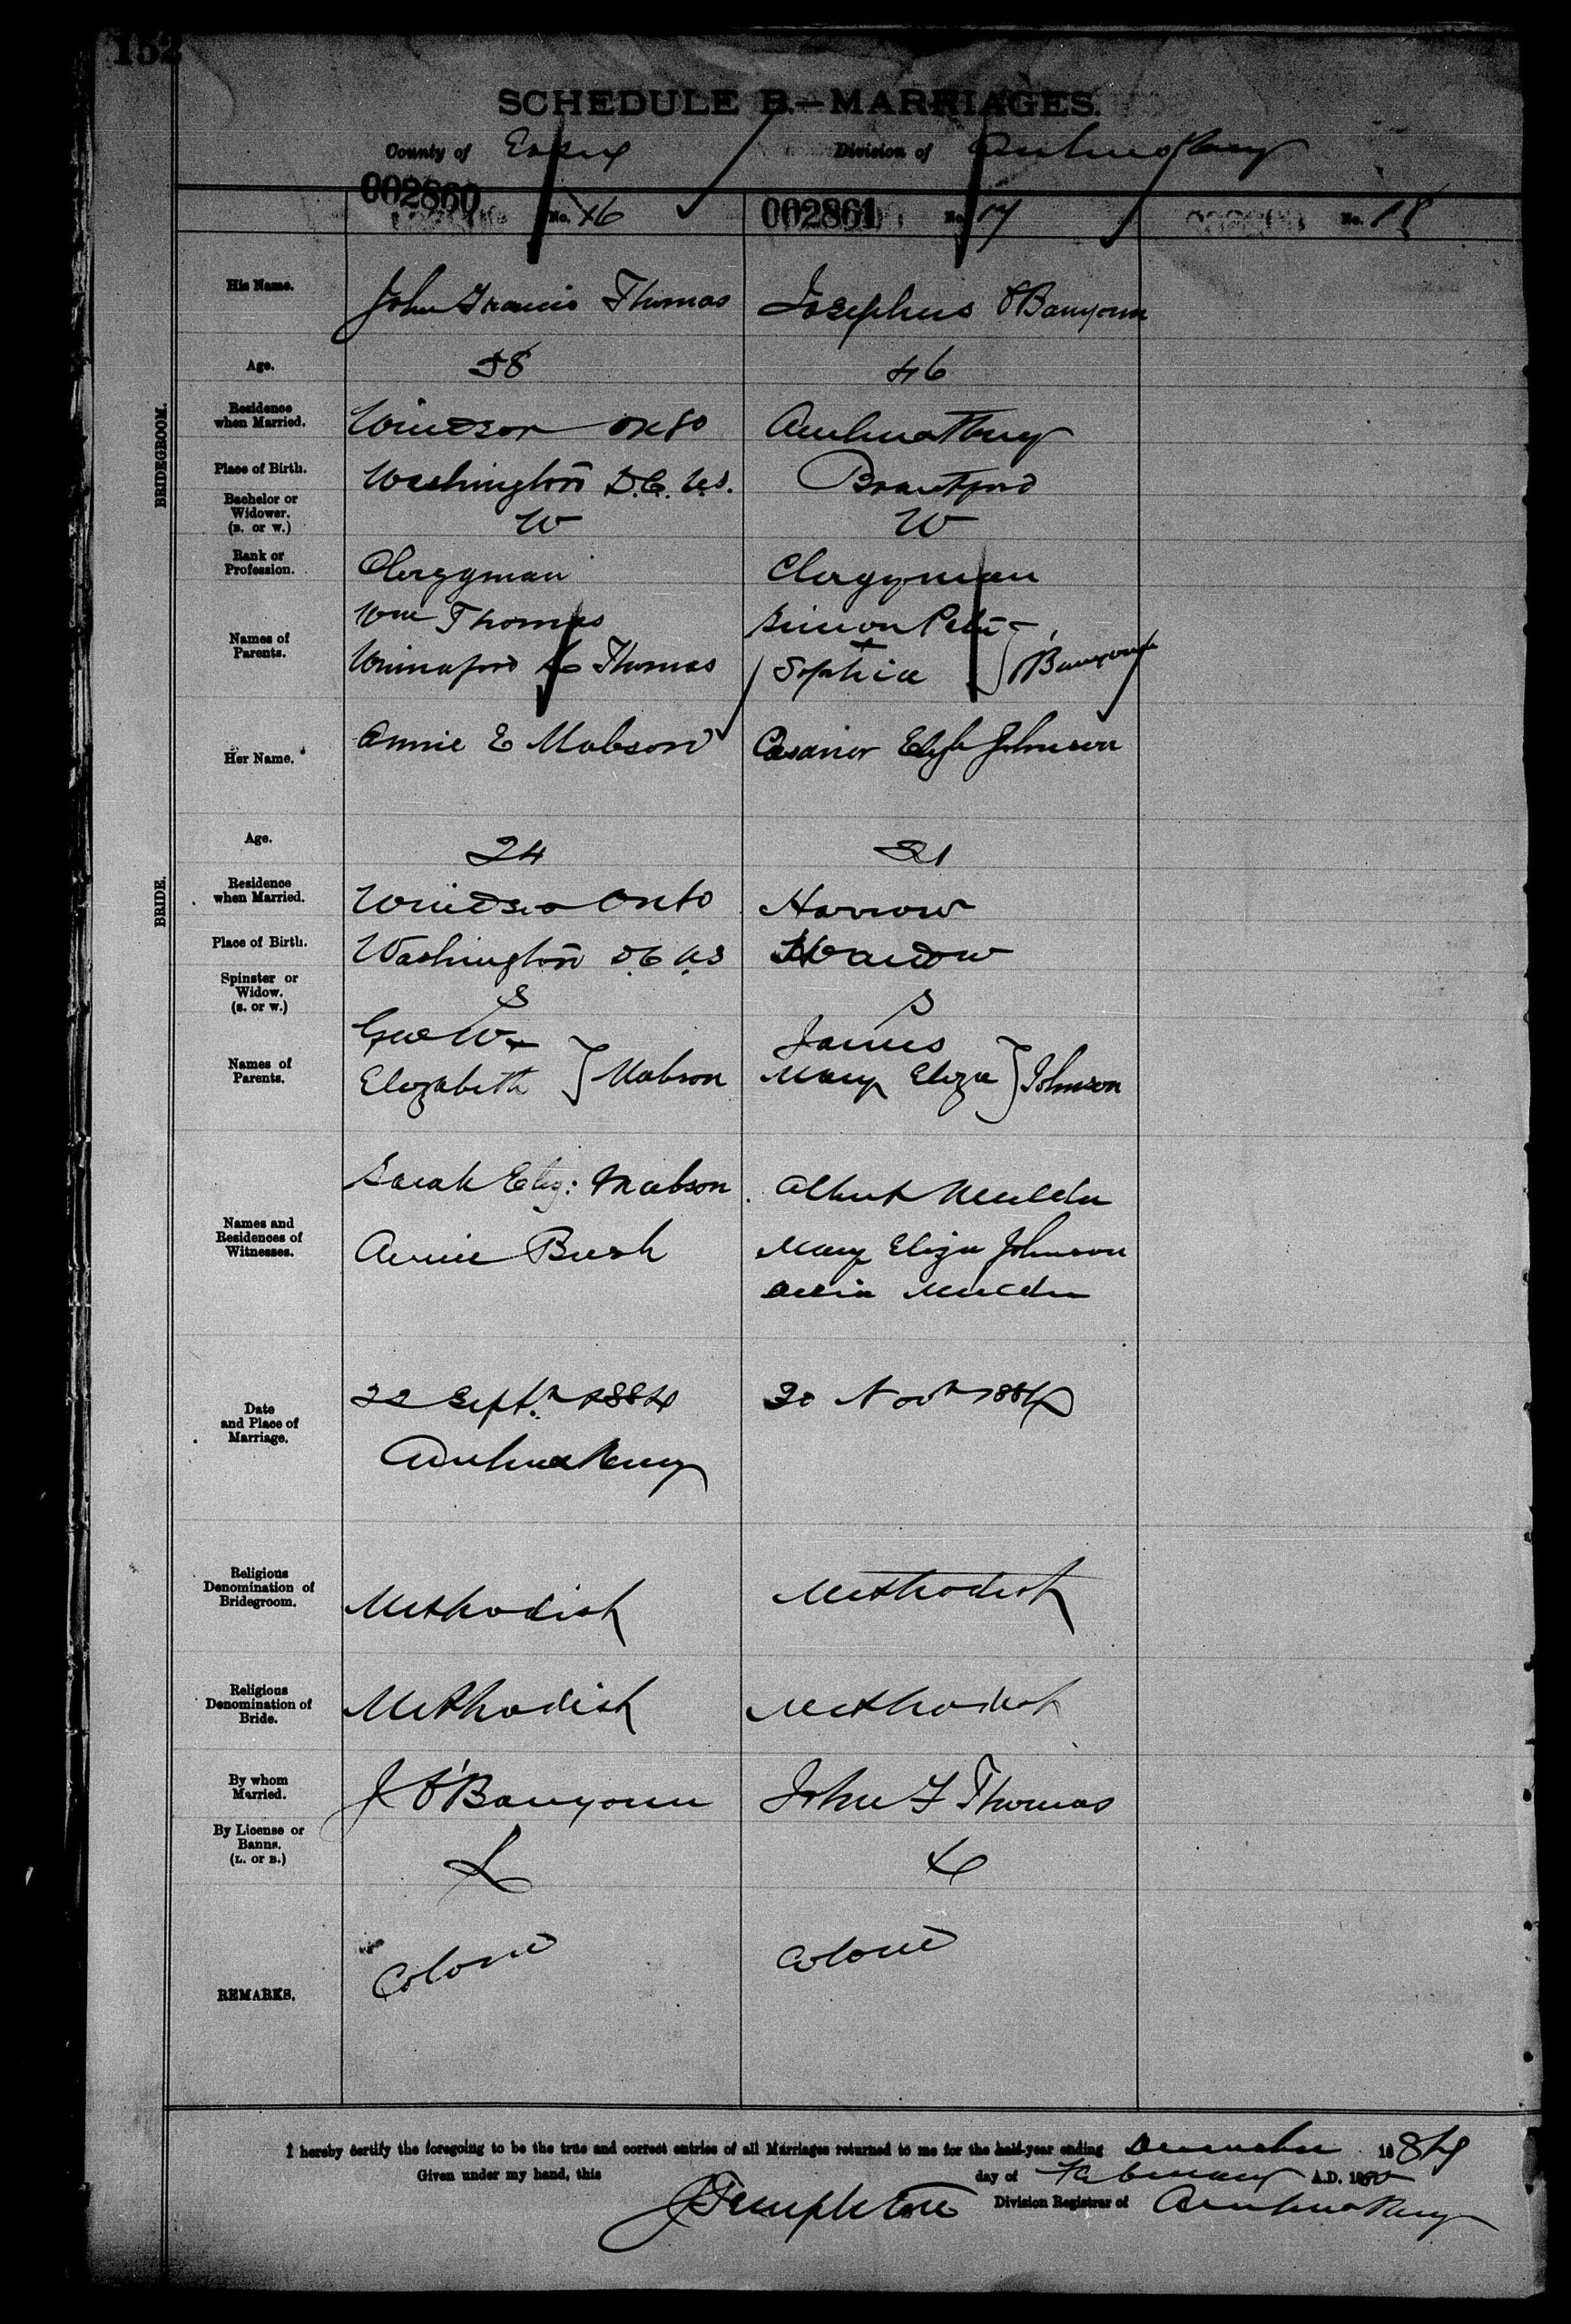 132
SCHEDULE B.—MARRIAGES.
County of Essex Division of Amherstburg
002860 No. 16 002861 No. 17 No. 18
BRIDEGROOM.
His Name. John Francis Thomas Josephus O'Banyoun
Age. 38 46
Residence when Married. Windsor Onto Amherstburg
Place of Birth. Washington D.C. U.S. Brantford
Bachelor or Widower. (B. or W.) W W
Rank or Profession. Clergyman Clergyman
Names of Parents. Wm Thomas Simon Peter
Thomas Sophia O'Banyoun
BRIDE.
Her Name. Annie E Mabson Johnson
Age. 24 21
Residence when Married. Windsor Onto Harrow
Place of Birth. Washington D.C. U.S Harrow
Spinster or Widow. (S. or W.) S S
Names of Parents. Geo W. James
Elizabeth } Mabson Mary Eliza } Johnson
Names and Residences of Witnesses. Sarah Eliz: Mabson Albert Mulder
Annie Bush Mary Eliza Johnson
Mulder
Date and Place of Marriage. 22 Sept. 1884 30 Nov 1884
Amherstburg
Religious Denomination of Bridegroom. Methodist Methodist
Religious Denomination of Bride. Methodist Methodist
By whom Married. J O'Banyoun John F Thomas
By License or Banns. (L. or B.) L L
REMARKS. Colored Colored
I hereby certify the foregoing to be the true and correct entries of all Marriages returned to me for the half-year ending December 1884
Given under my hand, this day of February A.D. 1885
J Templeton Division Registrar of Amherstburg